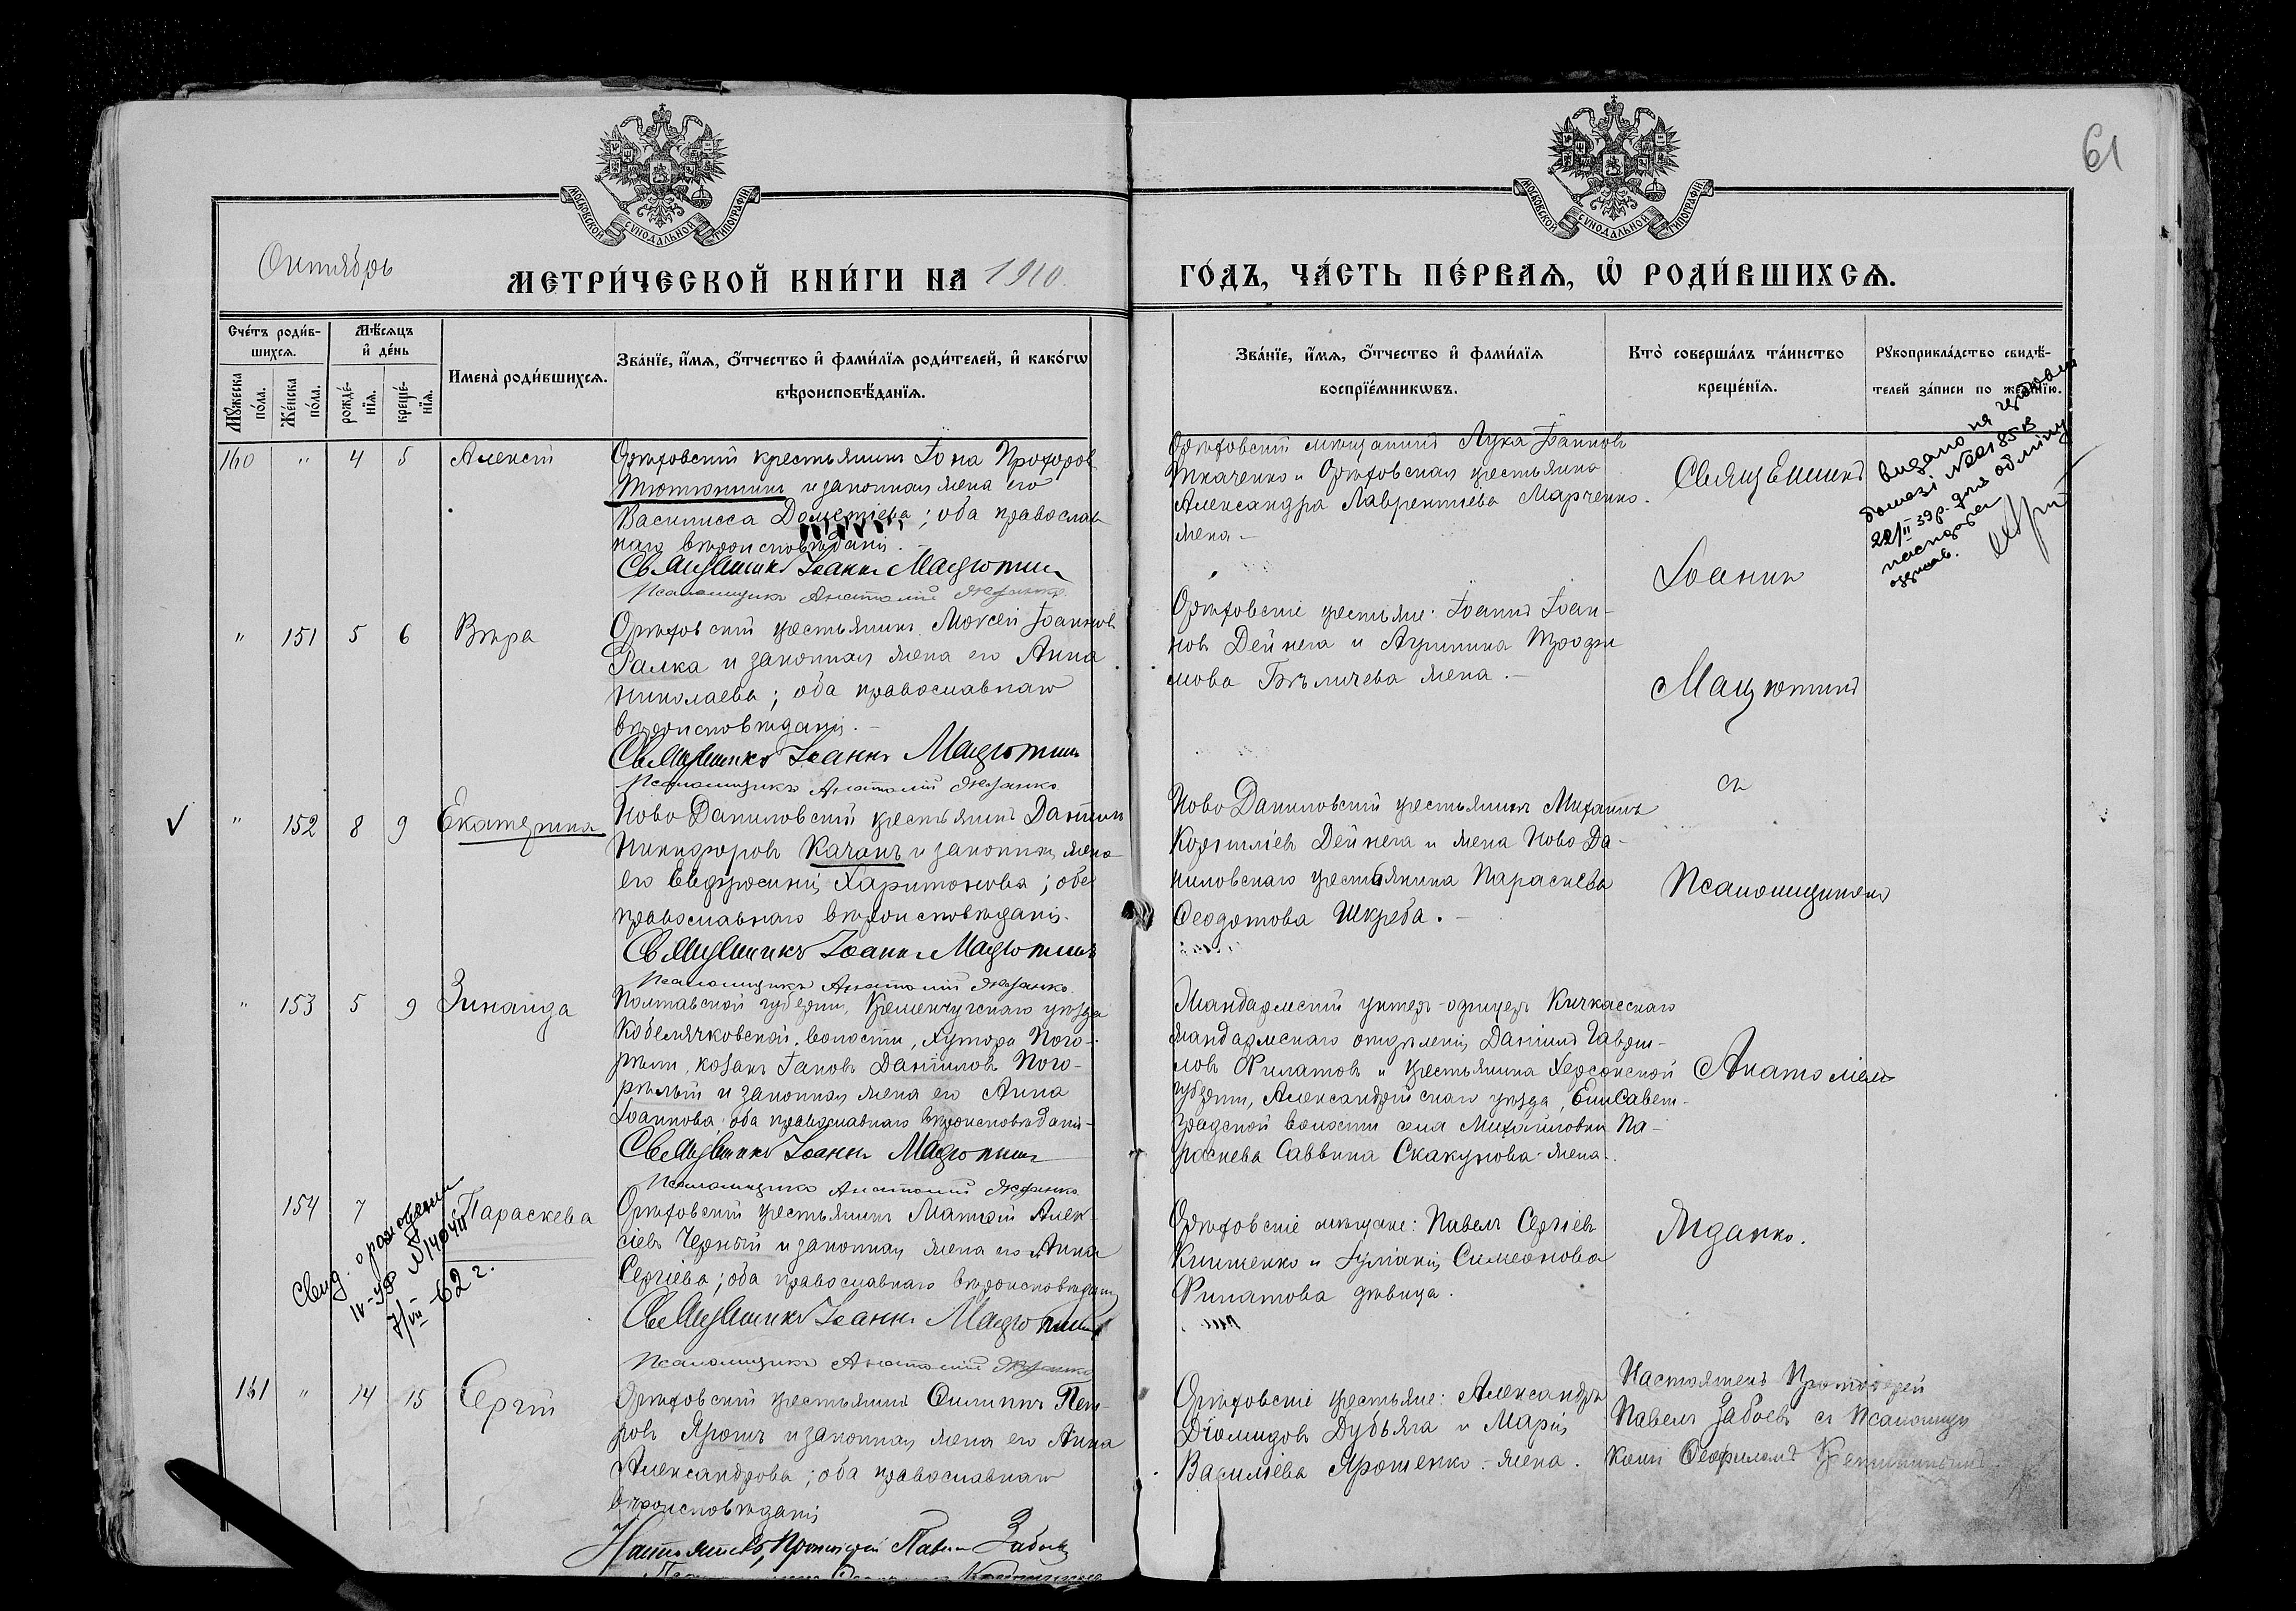 61
МОСКОВСКОЙ СѴНОДАЛЬНОЙ ТИПОГРАФІИ
МОСКОВСКОЙ СѴНОДАЛЬНОЙ ТИПОГРАФІИ
Октябрь
МЕТРИ́ЧЕСКОЙ КНИ́ГИ НА 1910
ГО́ДЪ, ЧА́СТЬ ПЕ́РВАѦ, Ѽ РОДИ́ВШИХСѦ.
Сче́тъ роди́в-
шихсѧ.
Мꙋ́жеска по́ла.
Же́нска по́ла.
Мѣ́сѧцъ и҆ де́нь
рожде́-нїѧ.
креще́-нїѧ.
Имена̀ роди́вшихсѧ.
Зва́нїе, и҆́мѧ, ѻ҆́тчество и҆ фами́лїѧ роди́телей, и҆ како́гѡ
вѣроисповѣ́данїѧ.
Зва́нїе, и҆́мѧ, ѻ҆́тчество и҆ фами́лїѧ
воспрїе́мникѡвъ.
Кто̀ соверша́лъ та́инство
креще́нїѧ.
Рꙋкоприкла́дство свидѣ́-
телей за́писи по жела́нїю.
160 " 4 5 Алексій
Орѣховскій крестьянинъ Іона Прохоровъ
Тютюнникъ и законная жена его
Василисса Дометіева; оба православ-
наго вѣроисповѣданія.
Священникъ Іоаннъ Мацютинъ
Псаломщикъ Анатолій Яжданко
Орѣховскій мѣщанинъ Лука Іоанновъ
Ткаченко и Орѣховская крестьянка
Александра Лаврентіева Марченко.
жена.
Священникъ
Іоаннъ
Мацютинъ
съ
Псаломщикомъ
Анатоліемъ
Яжданко.
видано на
22/II 39р. для обміну
паспорта
" 151 5 6 Вѣра
Орѣховскій крестьянинъ Моисей Іоанновъ
Галка и законная жена его Анна
Николаева; оба православнаго
вѣроисповѣданія.
Священникъ Іоаннъ Мацютинъ
Псаломщикъ Анатолій Яжданко
Орѣховскіе крестьяне: Іоаннъ Іоан-
новъ Дейнега и Агрипина Трофи
мова Бѣличева жена.
" 152 8 9 Екатерина
Ново Даниловскій крестьянинъ Даніилъ
Никифоровъ Качанъ и законная жена
его Евфросинія Харитонова; обе
православнаго вѣроисповѣданія.
Священникъ Іоаннъ Мацютинъ
Псаломщикъ Анатолій Яжданко.
Ново Даниловскій крестьянинъ Михаилъ
Корниліевъ Дейнега и жена Ново Да-
ниловскаго крестьянина Параскева
Феодотова Шкреба.
" 153 5 9 Зинаида
Полтавской губерніи, Кременчугскаго уѣзда
Кобелячковской волости, хутора Пого-
рѣли, козакъ Іаковъ Даніиловъ Пого-
рѣлый и законная жена его Анна
Іоаннова; оба православнаго вѣроисповѣданія
Священникъ Іоаннъ Мацютинъ
Псаломщикъ Анатолій Яжданко
Жандармскій унтеръ-офицеръ Кичкасскаго
жандармскаго отдѣленія Даніилъ Гаври-
ловъ Филатовъ и крестьянина Херсонской
губерніи, Александрійскаго уѣзда, Елисавет-
градской волости села Михайловки Па-
раскева Саввина Скакунова жена.
154 7 Параскева
Свид. о рождении
IV-УФ №140411
7/VII-62 г.
Орѣховскій крестьянинъ Матѳій Алек-
сіевъ Черный и законная жена его Анна
Сергіева; оба православнаго вѣроисповѣданія
Священникъ Іоаннъ Мацютинъ
Псаломщикъ Анатолій Яжданко
Орѣховскіе мѣщане: Павелъ Сергіевъ
Клименко и Іуліанія Симеонова
Филатова дѣвица.
161 " 14 15 Сергій
Орѣховскій крестьянинъ Филиппъ Пет-
ровъ Ярошъ и законная жена его Анна
Александрова; оба православнаго
вѣроисповѣданія
Настоятель, Протоіерей Павелъ Забаевъ
Орѣховскіе крестьяне: Александръ
Діомидовъ Дубъяга и Марія
Василіева Ярошенко жена.
Настоятель Протоіерей
Павелъ Забаевъ съ псаломщи
комъ Феофиломъ